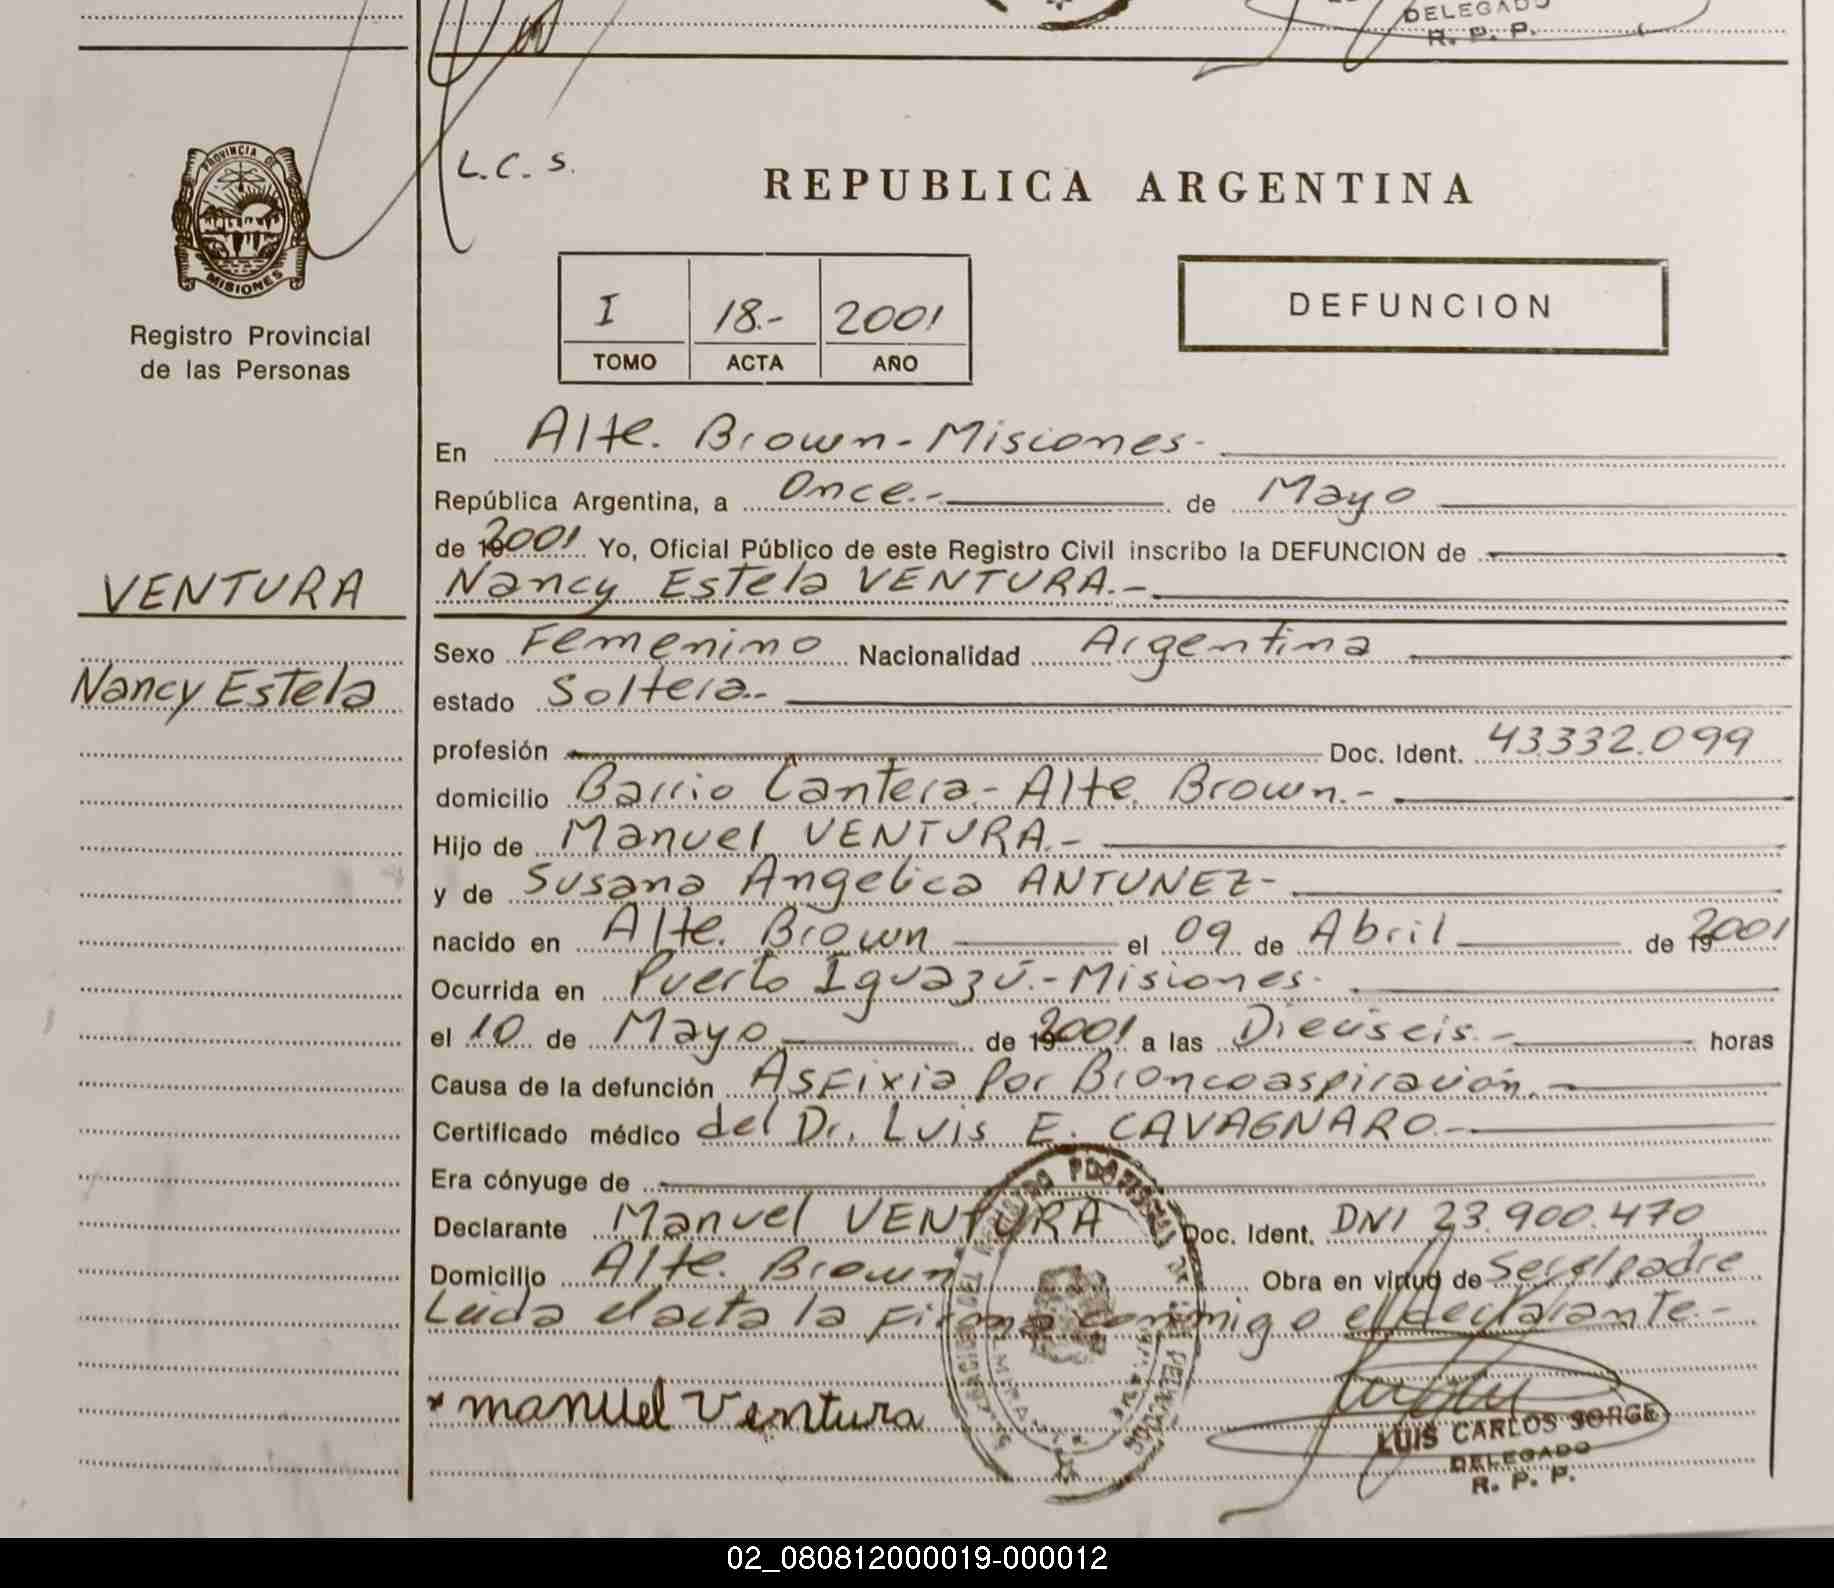 DELEGADO
R. P. P.
L.C.S.
PROVINCIA DE
MISIONES
Registro Provincial
de las Personas
REPUBLICA ARGENTINA
I 18.- 2001
TOMO ACTA AÑO
DEFUNCION
En Alte. Brown-Misiones-
República Argentina, a Once.- de Mayo
de 2001 Yo, Oficial Público de este Registro Civil inscribo la DEFUNCION de
VENTURA
Nancy Estela VENTURA.-
Sexo Femenino Nacionalidad Argentina
Nancy Estela
estado Soltera.-
profesión Doc. Ident. 43332.099
domicilio Barrio Cantera.- Alte. Brown.-
Hijo de Manuel VENTURA.-
y de Susana Angelica ANTUNEZ-
nacido en Alte. Brown el 09 de Abril de 2001
Ocurrida en Puerto Iguazú.-Misiones-
el 10 de Mayo de 2001 a las Dieciseis.- horas
Causa de la defunción Asfixia Por Broncoaspiración.-
Certificado médico del Dr. Luis E. CAVAGNARO.-
Era cónyuge de
Declarante Manuel VENTURA Doc. Ident. DNI 23.900.470
Domicilio Alte. Brown Obra en virtud de Ser el padre
Leida el acta la Firma conmigo el declarante.-
* manuel Ventura
LUIS CARLOS SORGE
DELEGADO
R. P. P.
02_080812000019-000012